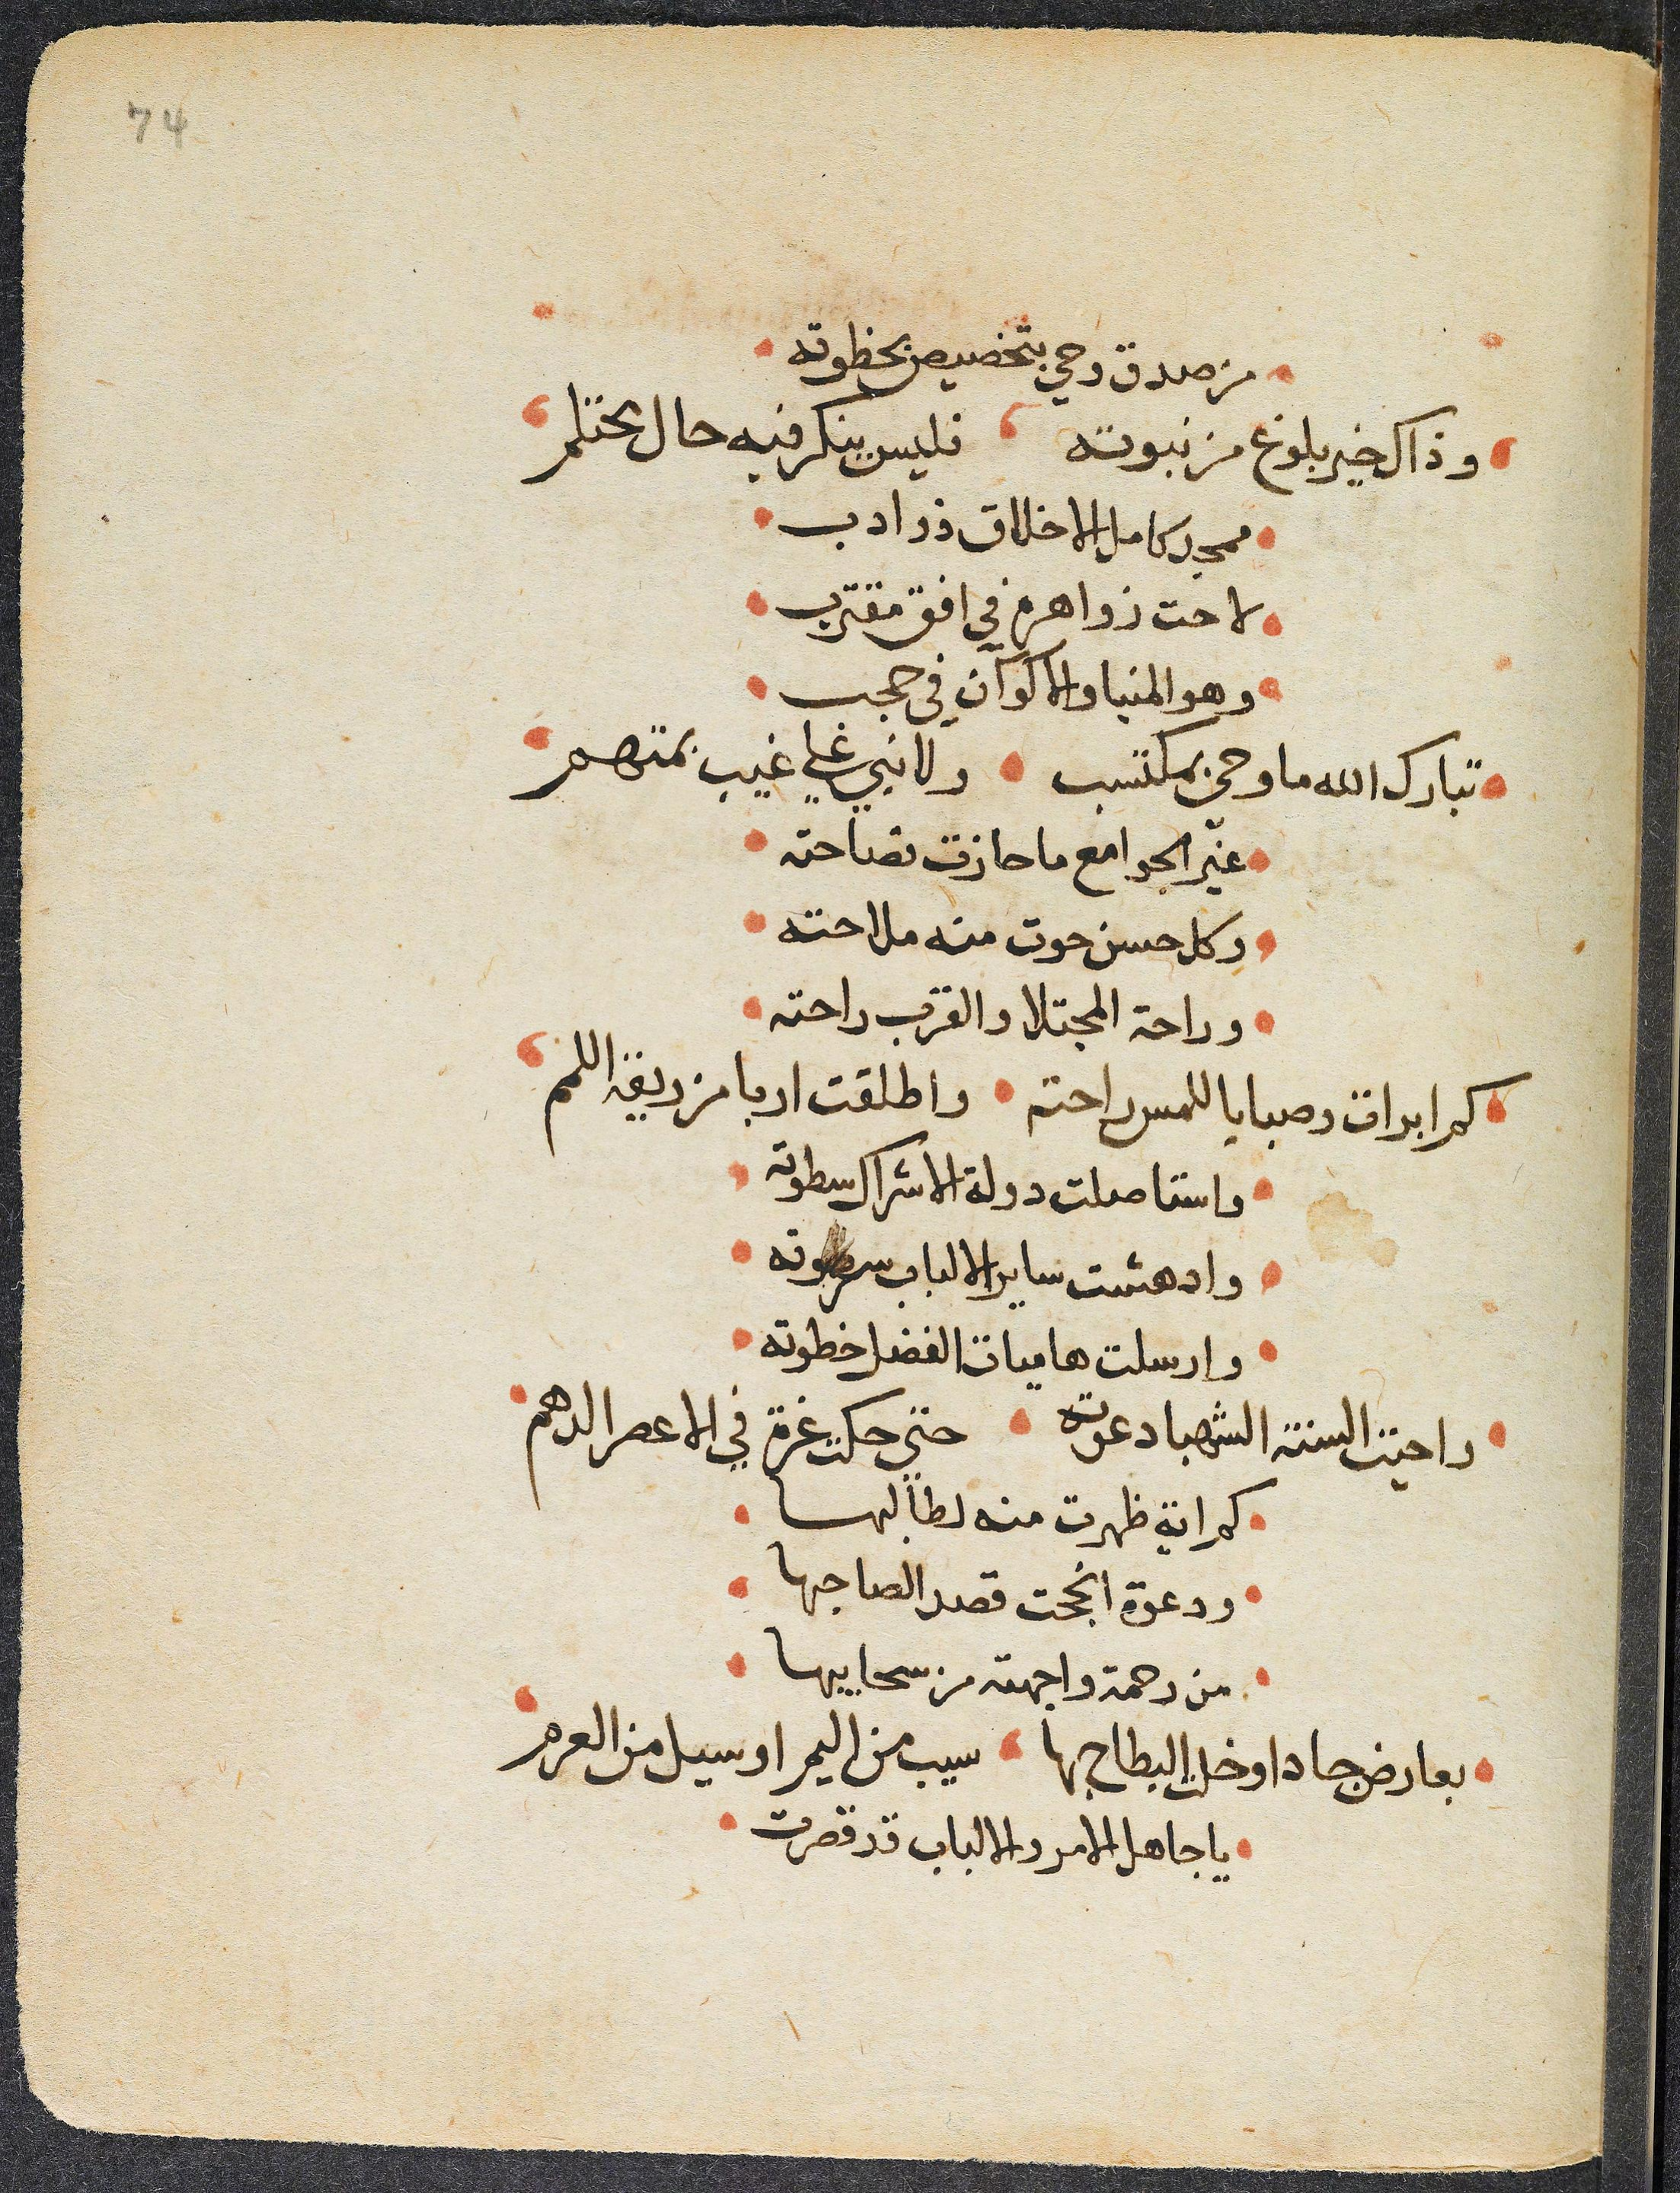 74
من صدق وحي بتخصيص بحظوته
وذاك خير بلوغ من نبوته فليس ينكر فيه حال محتلم
ممجد كامل الاخلاق ذو ادب
لاحت زواهره في افق مقترب
وهو المنبا والاكوان في حجب
تبارك الله ما وحي بمكتسب ولا نبي على غيب بمتهم
غير الجوامع ما حازت فصاحته
وكل حسن حوت منه ملاحته
وراحة المجتلا والقرب راحته
كم ابرات وصبا باللمس راحته واطلقت اربا من ربقة اللمم
واستاصلت دولة الاشراك سطوته
وادهشت ساير الالباب
وارسلت هاميات الفضل خطوته
واحيت السنة الشهبا دعوته حتى حكت غرة في الاعصر الدهم
كم اية ظهرت منه لطالبها
ودعوة انجحت قصد الصاحبها
من رحمة واجهته من سحايبها
بعارض جاد او خلت البطاح بها سيب من اليم او سيل من العرم
يا جاهل الامر والالباب قد قصرت